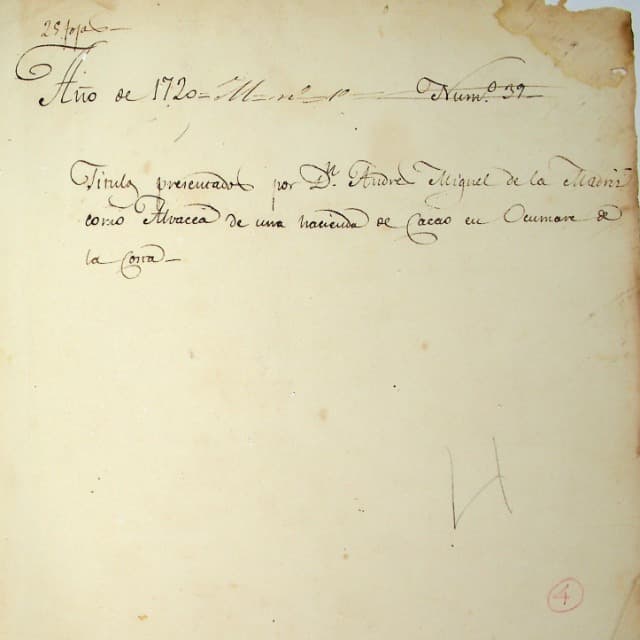 25 fojas
Año de 1720 = M = nº 10 Num.º 39
Titulos presentados por Dn. Andres Miguel de la Madriz
como Alvacea de una hacienda de Cacao en Ocumare de
la Costa
4